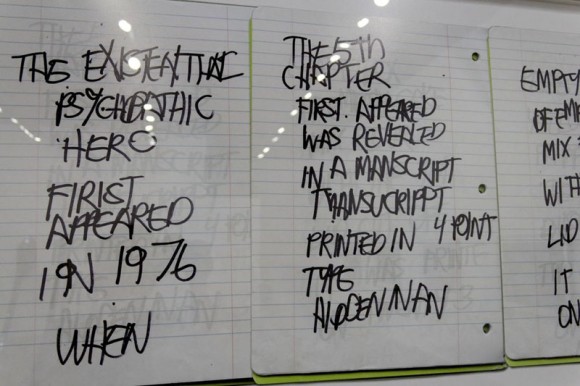 THE EXISTENTIAL
PSYCHOPATHIC
HERO
FIRIST
APPEARED
IN 1976
WHEN
THE 5th
CHAPTER
FIRST. APPEARED
WAS REVEALED
IN A MANSCRIPT
PRINTED IN 4 POINT
TYPE
HIDDEN IN AN
EMPTY
MIX
WITH
LID
IT
ON